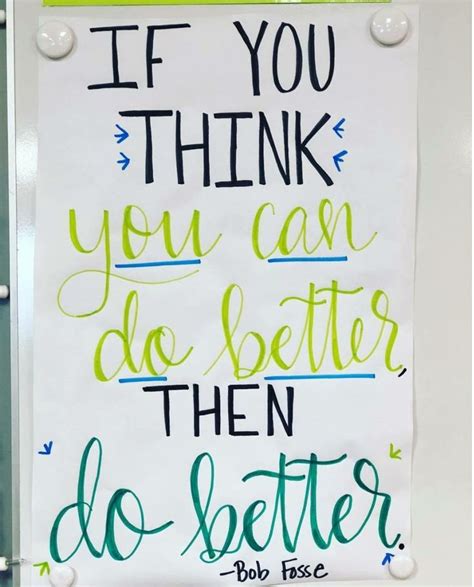 IF YOU
THINK
you can
do better,
THEN
do better.
-Bob Fosse